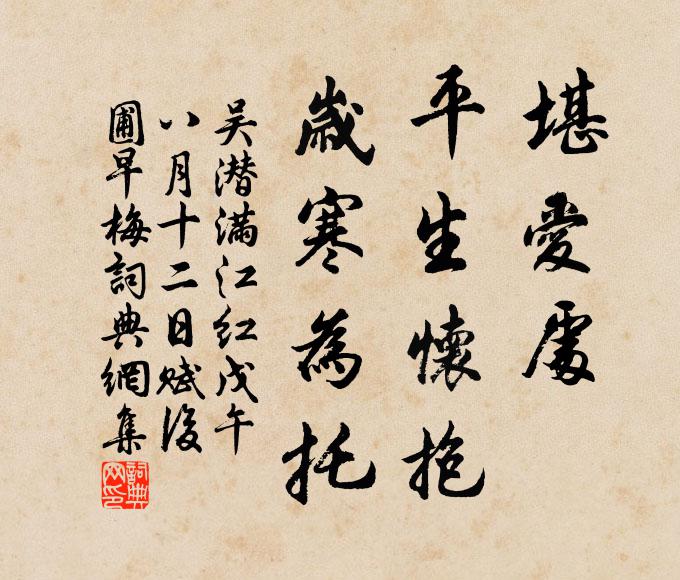 堪愛處
平生懷抱
歲寒為托
吴潛满江红戊午
八月十二日赋後
圃早梅詞典網集
詞典网印